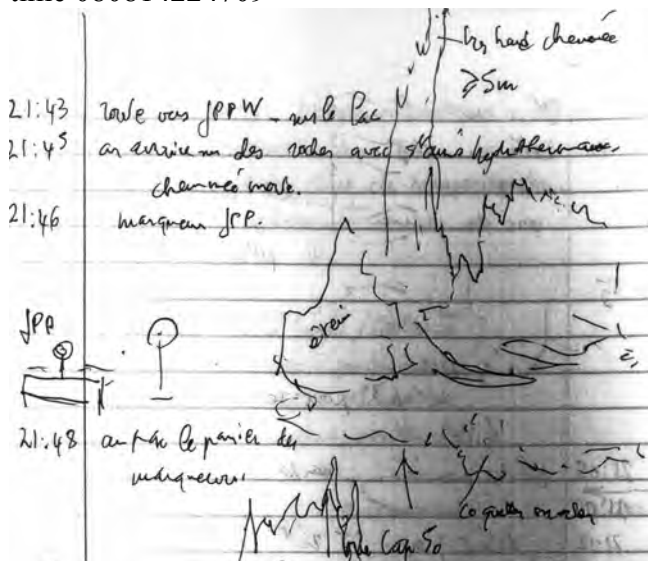 très haute cheminée
≥5m
21:43 route vers JPPW - sur le lac
21:45 on arrive sur des roches avec hydrothermaux,
cheminée morte.
21:46 marqueur JPP.
JPP
éteint
21:48 on le panier de
marqueurs.
coquilles
Cap 50